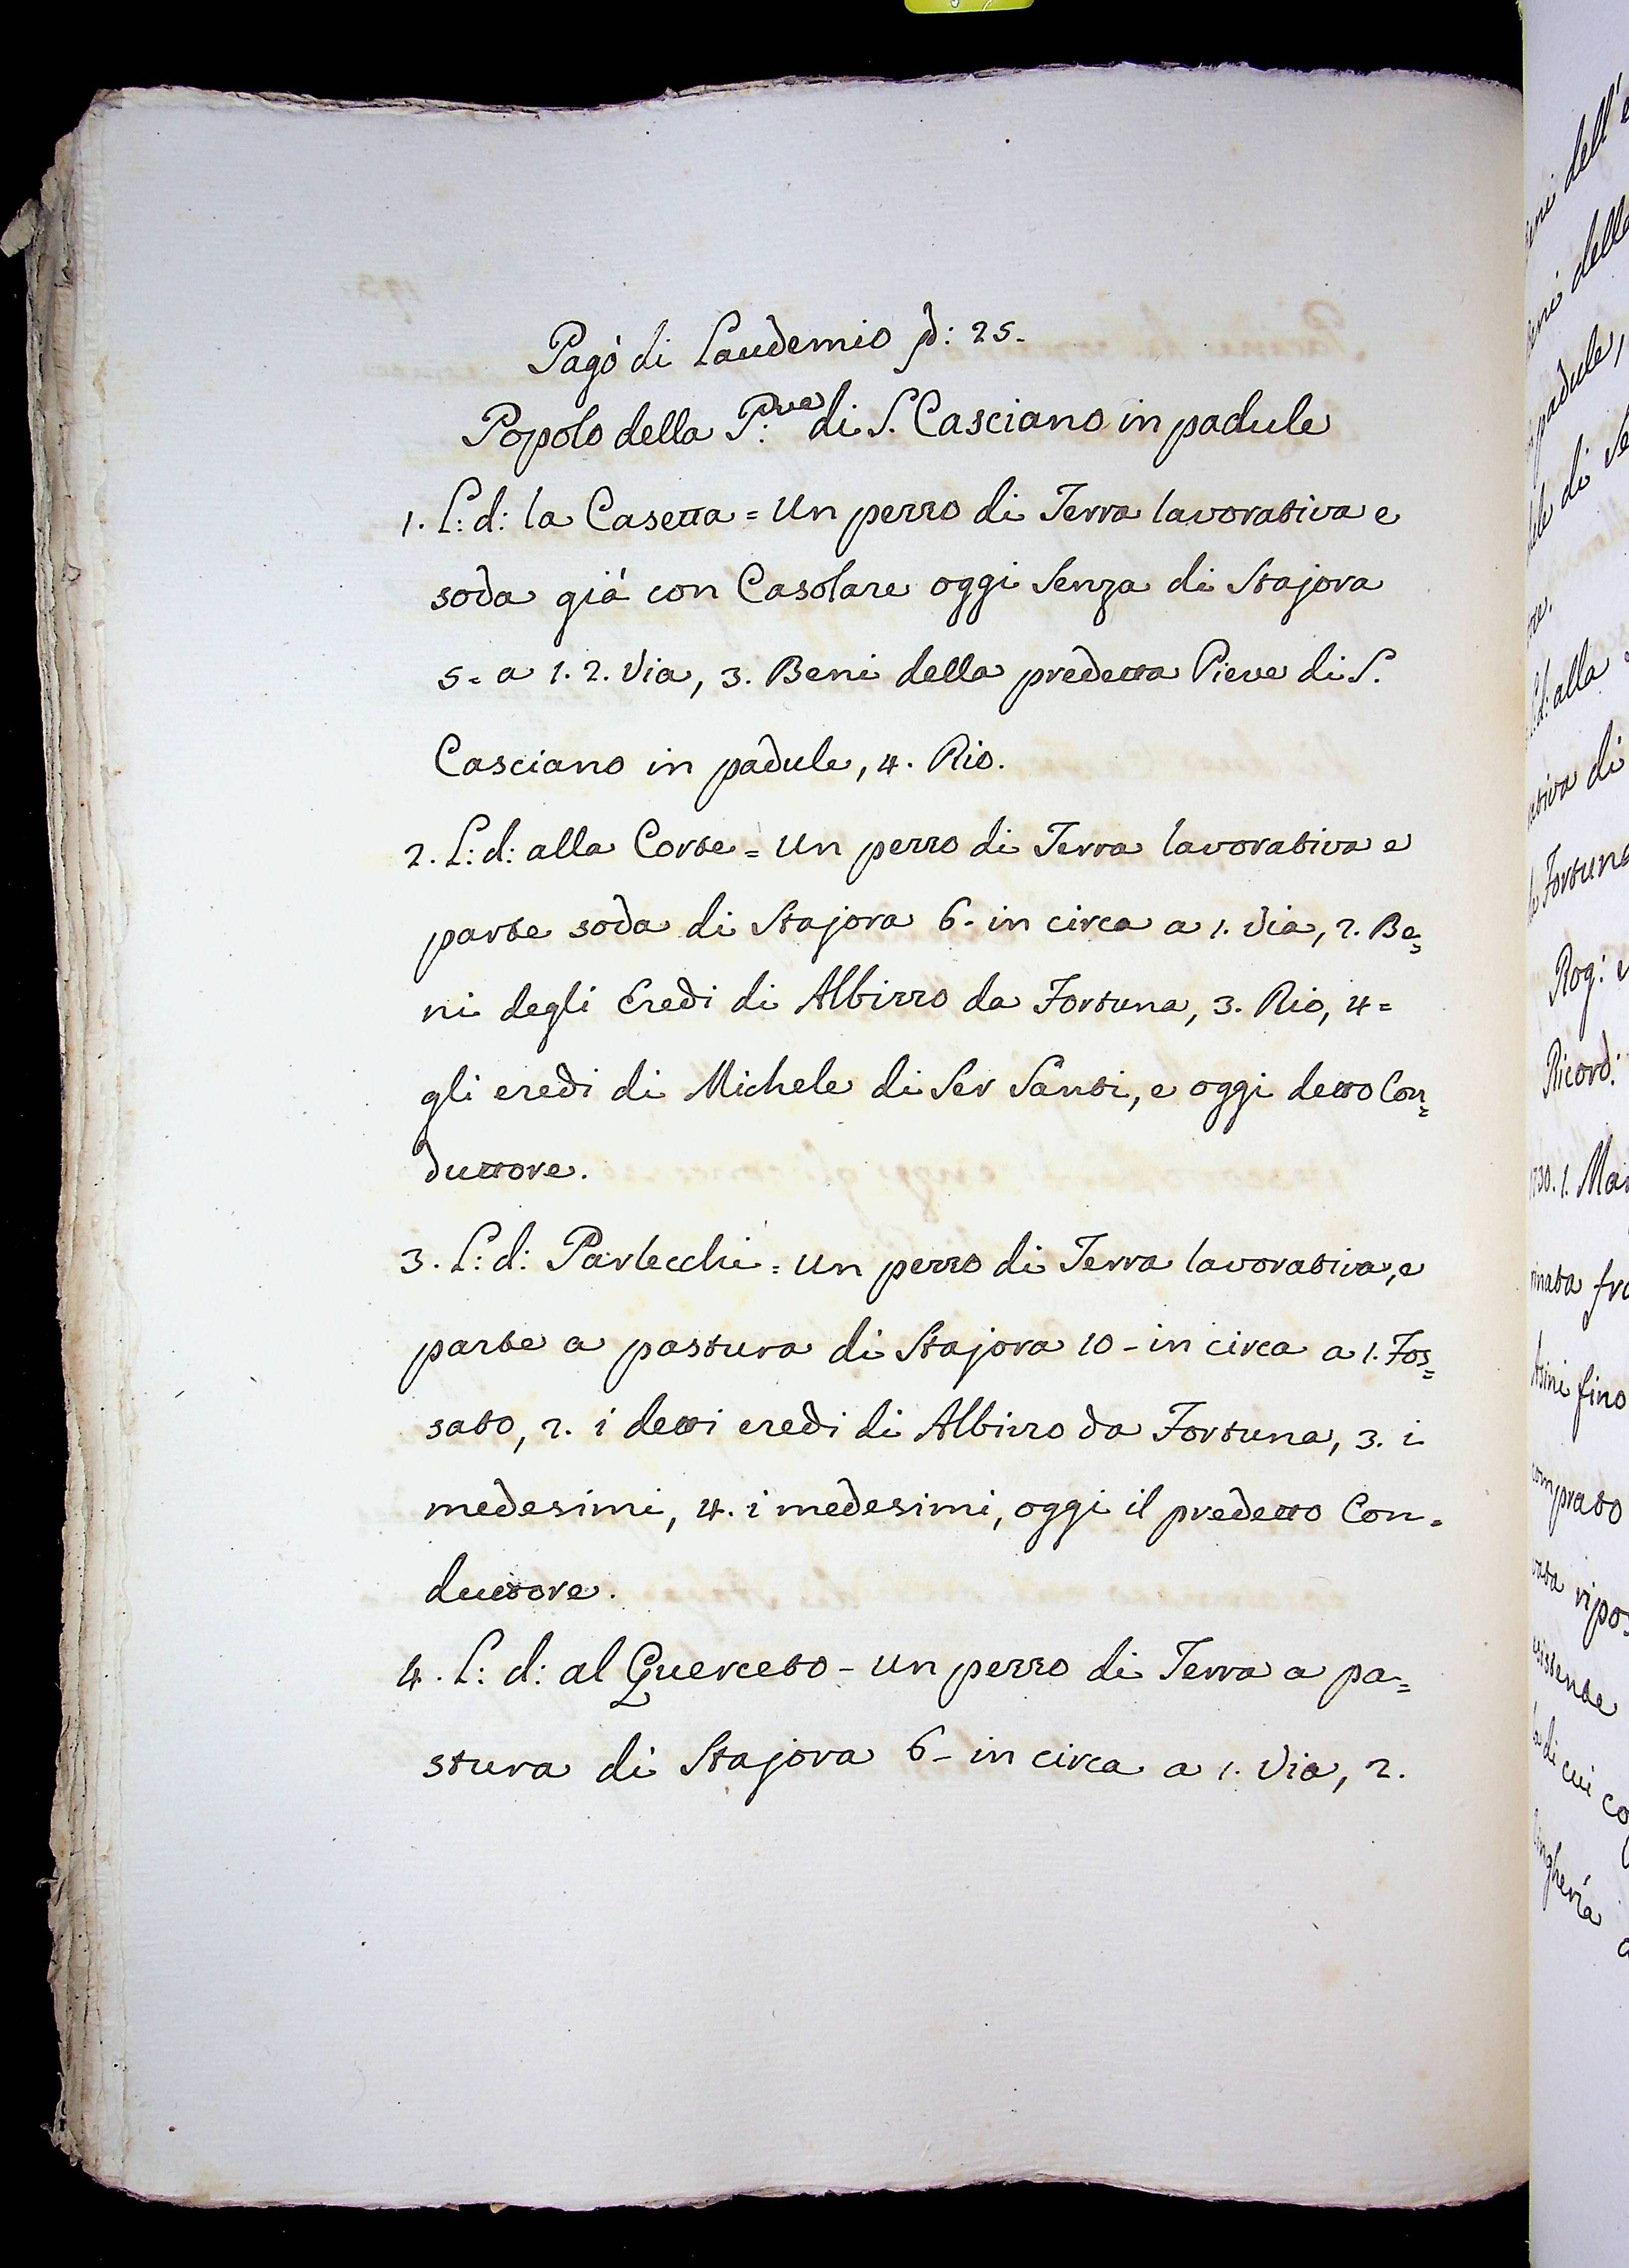 Pagò di Laudemio ∫d: 25.
Popolo della P:ve di S. Casciano in padule
1. L: d: la Casetta = Un pezzo di Terra lavorativa e
soda già con Casolare oggi Senza di Stajora
5 = a 1. 2. Via, 3. Beni della predetta Pieve di S.
Casciano in padule, 4. Rio.
2. L: d: alla Corte = Un pezzo di Terra lavorativa e
parte soda di Stajora 6 - in circa a 1. Via, 2. Be=
ni degli Eredi di Albizzo da Fortuna, 3. Rio, 4 =
gli eredi di Michele di Ser Santi, e oggi detto Con=
duttore.
3. L: d: Parlecchi = Un pezzo di Terra lavorativa, e
parte a pastura di Stajora 10 - in circa a 1. Fos=
sato, 2. i detti eredi di Albizzo da Fortuna, 3. i
medesimi, 4. i medesimi, oggi il predetto Con=
duttore.
4. L: d: al Querceto - Un pezzo di Terra a pa=
stura di Stajora 6 - in circa a 1. Via, 2.
dell'
della
padule,
di
L:d: alla
di
Fortuna
Rog:
Ricord:
1730. 1.
fino
di cui